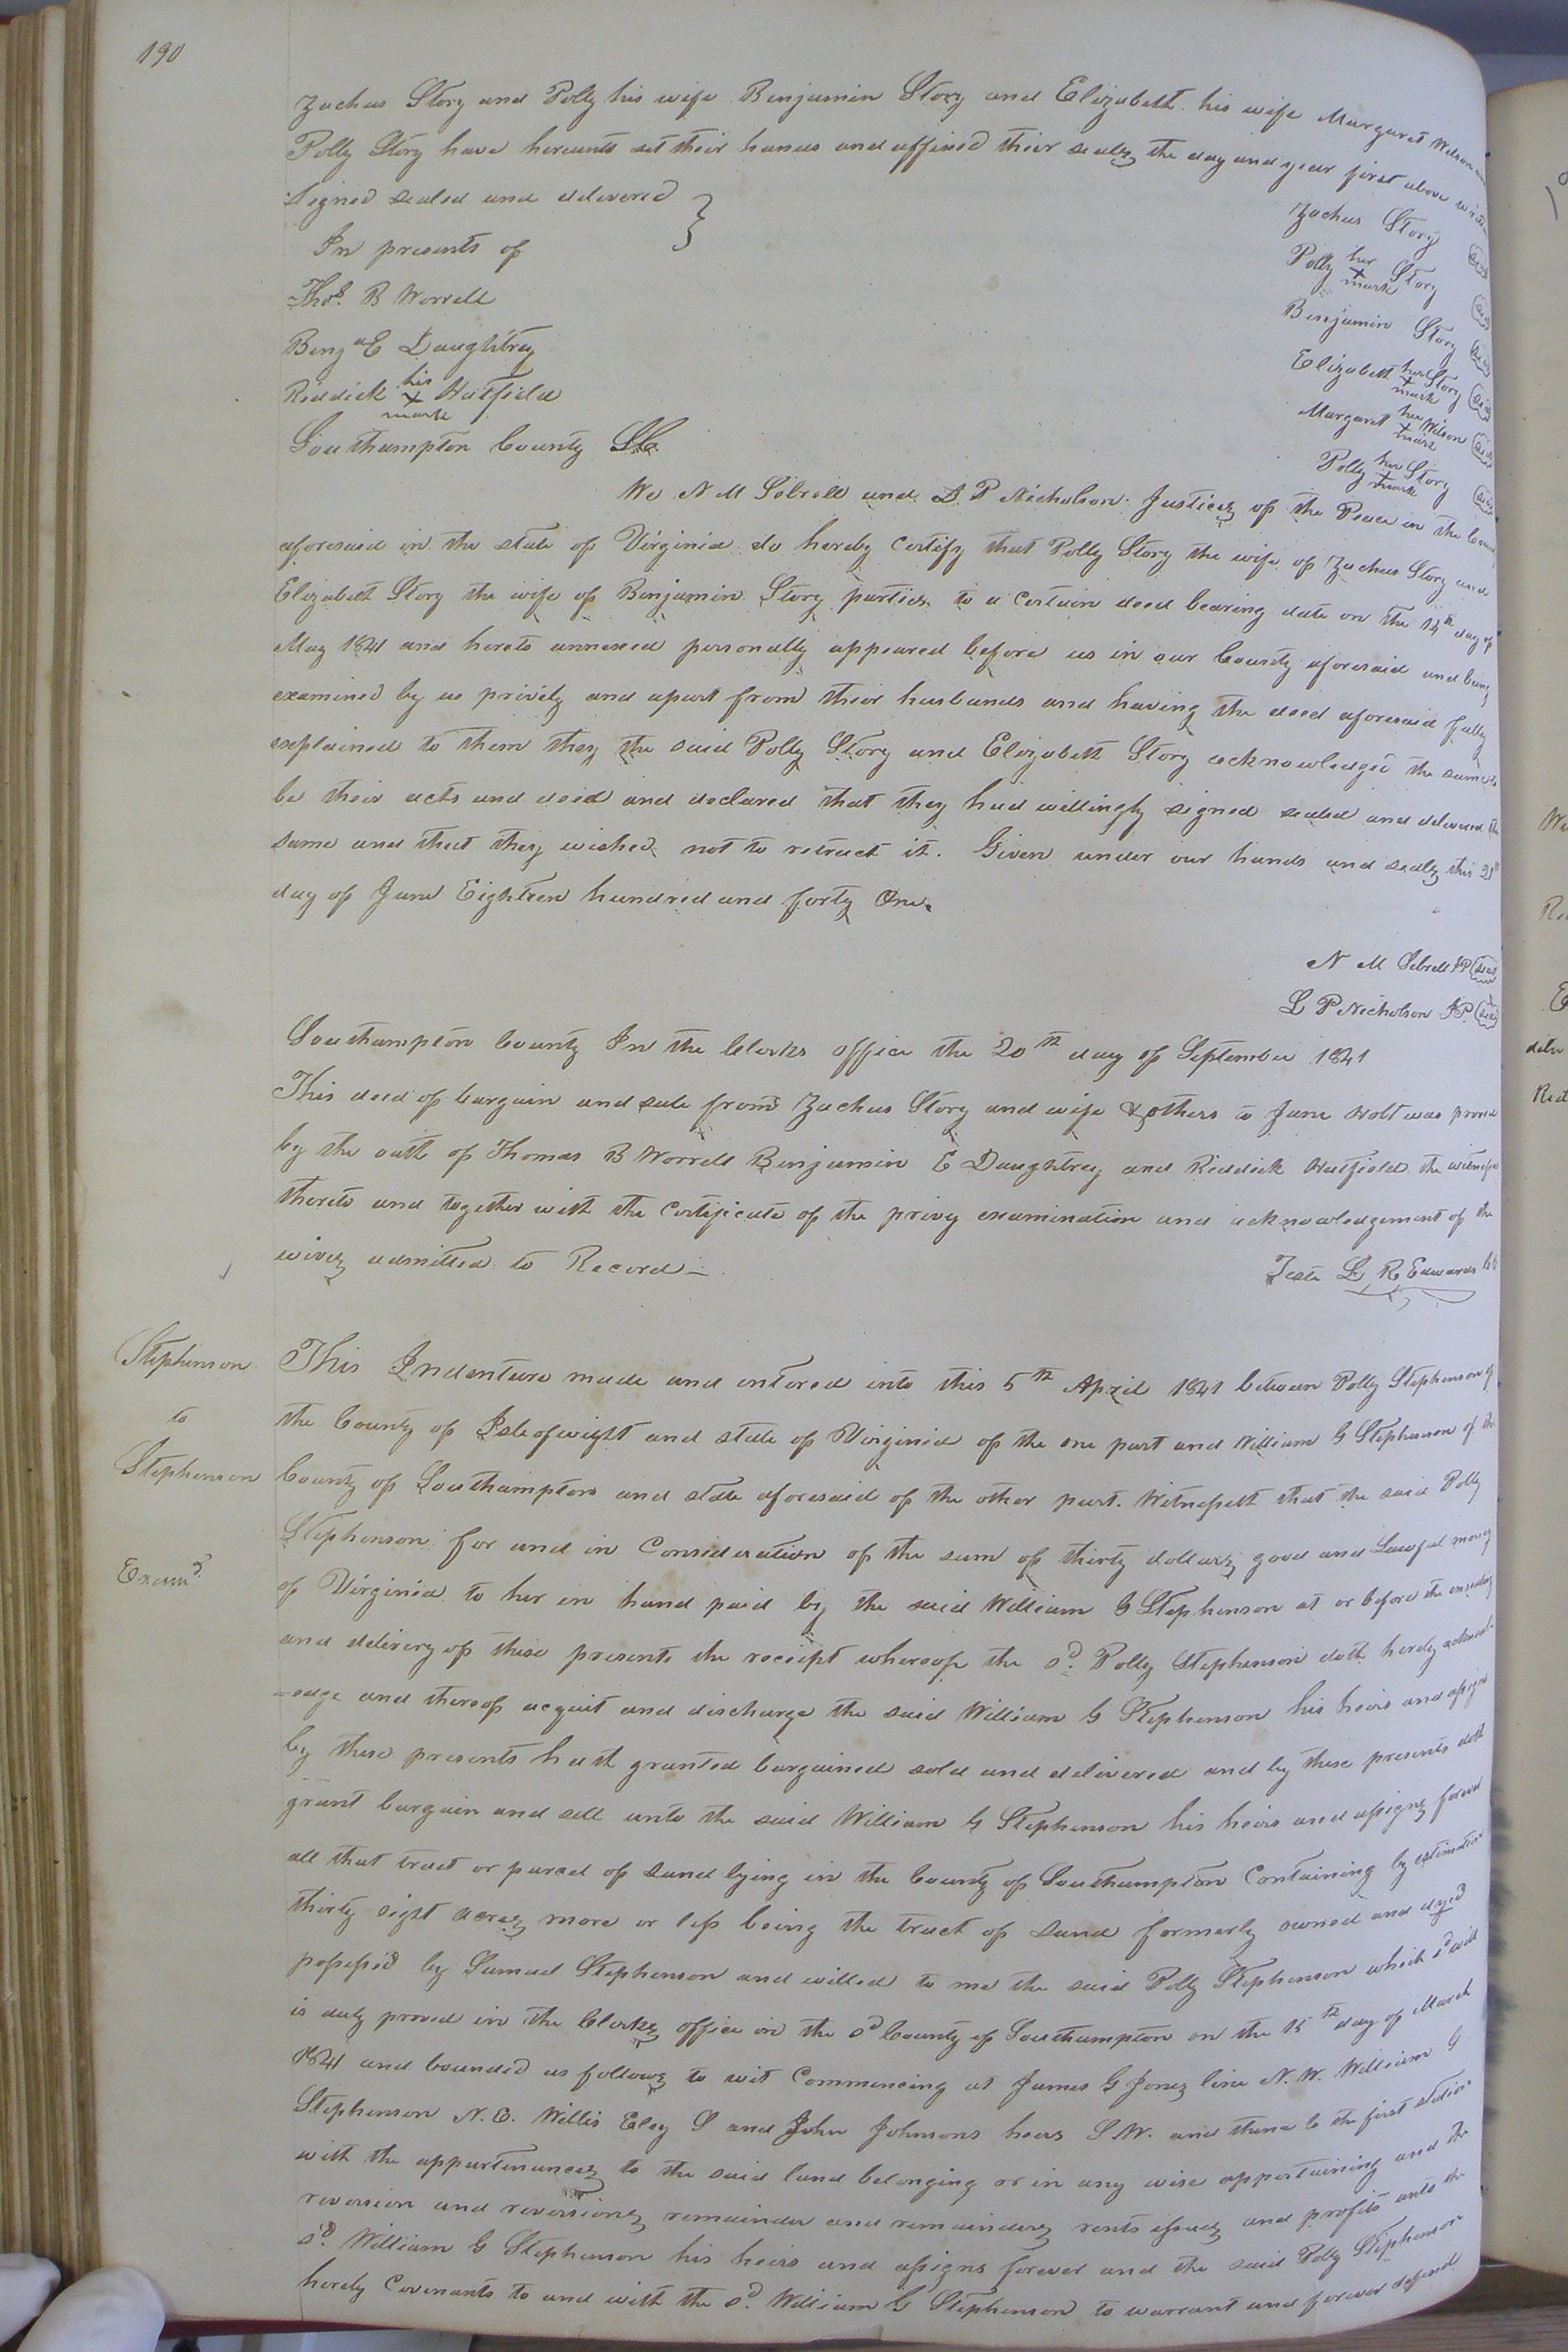 190
Zachus Story and Polly his wife Benjamin Story and Elizabeth his wife Margaret Wilson and
Polly Story have hereunto set their hands and affixed their seals the day and year first above written
Signed sealed and delivered }
In presents of
Thos. B Worrell
Benja E Daughtrey
Riddick his + mark Hatfield
Zachus Story Seal
Polly her + mark Story Seal
Benjamin Story Seal
Elizabeth her + mark Story Seal
Margaret her + mark Wilson Seal
Polly her + mark Story Seal
Southampton County SC.
We N M Sebrell and L P Nicholson Justices of the Peace in the County
aforesaid in the state of Virginia do hereby certify that Polly Story the wife of Zachus Story and
Elizabeth Story the wife of Benjamin Story parties to a certain deed bearing date on the 14th day of
May 1841 and hereto annexed personally appeared before us in our County aforesaid and being
examined by us privily and apart from their husbands and having the deed aforesaid fully
explained to them they the said Polly Story and Elizabeth Story acknowledged the same to
be their acts and deed and declared that they had willingly signed sealed and delivered the
same and that they wished not to retract it. Given under our hands and seals this
day of June Eighteen hundred and forty One.
N M Sebrell JP Seal
L P Nicholson JP. Seal
Southampton County In the Clerks office the 20th day of September 1841
This deed of bargain and sale from Zachus Story and wife & others to Jane Holt was proved
by the oath of Thomas B Worrell Benjamin E Daughtrey and Riddick Hatfield the witnesses
thereto and together with the certificate of the privy examination and acknowledgement of the
wives admitted to Record –
Teste L R Edwards
Stephenson
to
Stephenson
Examd.
This Indenture made and entered into this 5th April 1841 between Polly Stephenson of
the County of Isleofwight and state of Virginia of the one part and William G Stephenson of the
County of Southampton and state aforesaid of the other part. Witnesseth that the said Polly
Stephenson for and in Consideration of the sum of thirty dollars good and Lawful money
of Virginia to her in hand paid by the said William G Stephenson at or before the ensealing
and delivery of these presents the receipt whereof the sd. Polly Stephenson doth hereby acknowl-
-edge and thereof acquit and discharge the said William G Stephenson his heirs and assigns
by these presents hath granted bargained sold and delivered and by these presents doth
grant bargain and sell unto the said William G Stephenson his heirs and assigns forever
all that tract or parcel of Land lying in the County of Southampton Containing by estimation
thirty eight acres more or less being the tract of Land formerly owned and
possessed by Samuel Stephenson and willed to me the said Polly Stephenson which sd will
is duly proved in the Clerks office in the sd County of Southampton on the 15th day of March
1841 and bounded as follows to wit Commencing at James G Jones line N. W. William G
Stephenson N. E. Willis Eley S and John Johnsons heirs S W. and thence to the first station
with the appurtenances to the said land belonging or in any wise appertaining and the
reversion and reversions remainder and remainders rents issues and profits unto the
sd. William G Stephenson his heirs and assigns forever and the said Polly Stephenson
hereby Covenants to and with the sd. William G Stephenson to warrant and forever defend